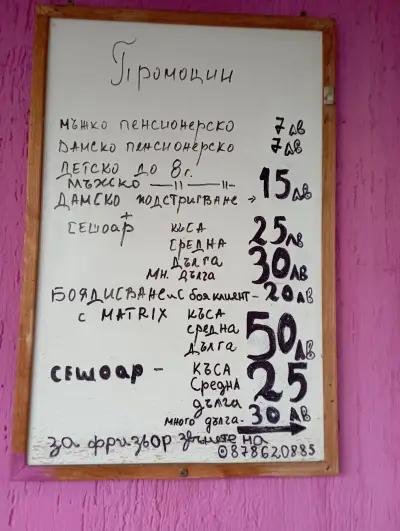 Промоции
мъжко пенсионерско 7 лв
Дамско пенсионерско 7 лв
Детско до 8 г.
Мъжско —"— —"— 15 лв
Дамско подстригване →
+
сешоар къса 25 лв
средна
дълга 30 лв
мн. дълга
Боядисване с боя клиент - 20 лв
с MATRIX къса 50 лв
средна
дълга
сешоар - къса 25
средна
дълга
много дълга. 30 лв
за фризьор звънете на
0878620885